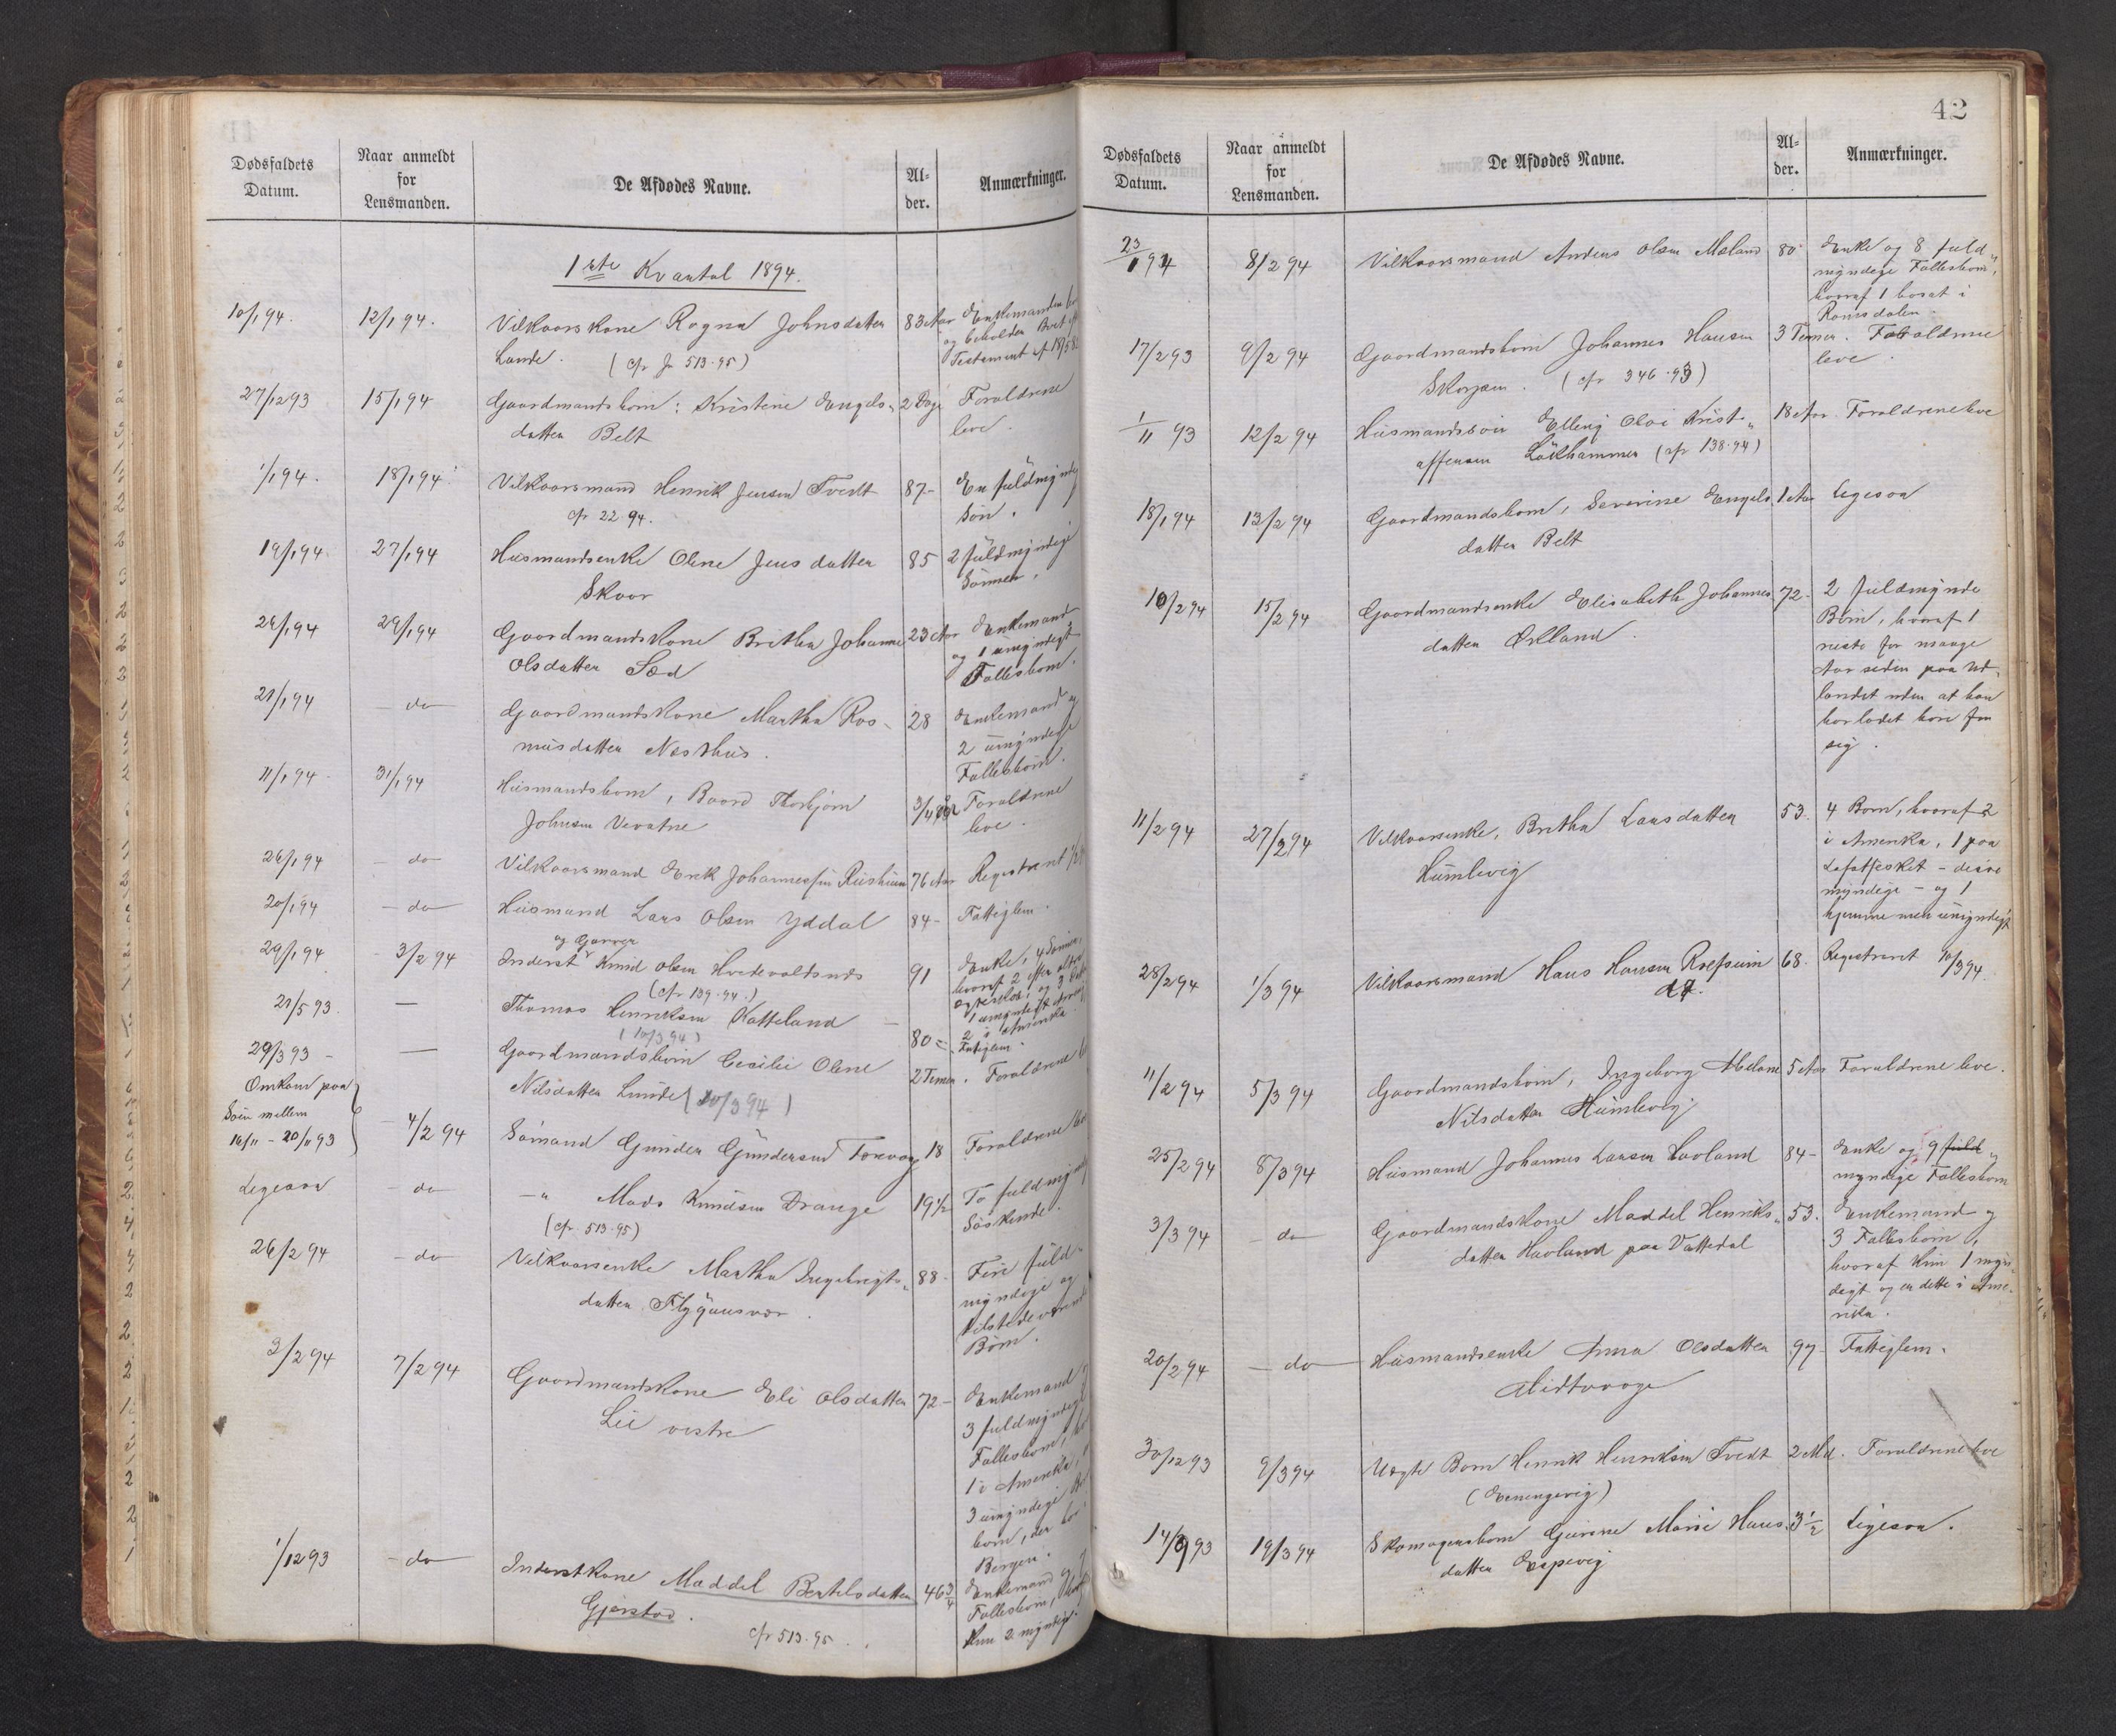 Dødsfaldets
Datum.
Naar anmeldt
for
Lensmanden.
De Afdødes Navne.
Al-
der.
Anmærkninger.
1ste Kvartal 1894.
10/1 94.
12/1 94.
Vilkaarskone Ragna Johnsdatter
Lande. (cfr J 513.95)
83 Aar
Enkemanden
og beholder Boet
Testament af 18/5 82
27/12 93
15/1 94
Gaardmandsbarn: Kristine Engels-
datter Belt
2 Dage
Forældrene
leve.
1/1 94.
18/1 94
Vilkaarsmand Henrik Jensen Tvedt
cfr 22.94.
87-
En fuldmyndig
Søn.
19/1 94
27/1 94
Husmandsenke Oline Jensdatter
Skaar
85
2 fuldmyndige
Sønner.
24/1 94
29/1 94
Gaardmandskone Britha Johanne
Olsdatter Sæd
23 Aar
Enkemand
og 1 umyndigt
Fællesbarn.
21/1 94
do
Gaardmandskone Martha Ras-
musdatter Næsthus.
28
Enkemand og
2 umyndige
Fællesbørn.
11/1 94
31/1 94
Husmandsbarn, Baard Thorbjørn
Johnsen Vevatne
3/4 Aar
Forældrene
leve.
26/1 94
do
Vilkaarsmand Erik Johannessen
76 Aar
Registreret
20/1 94
do
Husmand Lars Olsen Yddal
84-
Fattiglem.
29/1 94
3/2 94
og Garver
Inderst Knud Olsen
(cfr 139.94.)
91
Enke, 4 Sønner,
hvoraf 2 efter
og 3
1 umyndigt
2 i Amerika
21/5 93.
—
Thomas Henriksen Katteland
(10/3 94)
80
Fattiglem
29/3 93 -
—
Gaardmandsbarn Cecilie Oline
Nilsdatter Lunde (20/3 94)
2 Timer.
Forældrene
Omkom paa
Søen mellem
16/11 - 20/11 93
4/2 94
Sømand Gunder Gundersen
18
Forældrene
Ligesaa
do
—"— Mads Knudsen Drange
(cfr. 513.95)
19 1/2
To fuldmyndige
Søskende.
26/2 94
do
Vilkaarsenke Martha Ingebrigts-
datter Flygansvær.
88-
Fire fuld-
myndige og
tilstedeværende
Børn.
3/2 94
7/2 94
Gaardmandskone Eli Olsdatter
Lie vestre
72-
Enkemand
3 fuldmyndige
Fællesbørn,
1 i Amerika,
3 umyndige
børn, der bor
Bergen.
1/12 93
do
Inderstkone Maddel Bertelsdatter
Gjerstad.
cfr 513.95.
46 3/4
Enkemand og
Fællesbørn,
kun 2 myndige.
42
Dødsfaldets
Datum.
Naar anmeldt
for
Lensmanden.
De Afdødes Navne.
Al-
der.
Anmærkninger.
23/1 94
8/2 94
Vilkaarsmand Anders Olsen Mæland
80
Enke og 8 fuld-
myndige Fællesbørn,
hvoraf 1 bosat i
Romsdalen.
17/2 93
9/2 94
Gaardmandsbarn Johannes Hansen
Skorpen. (cfr 346.93)
3 Timer.
Forældrene
leve.
1/11 93
12/2 94
Husmandssøn Elling Olai Krist-
offersen Lökhammer (cfr 138.94)
18 Aar.
Forældrene leve
18/1 94
13/2 94
Gaardmandsbarn, Severine Engels-
datter Belt
1 Aar
Ligesaa
10/2 94
15/2 94
Gaardmandsenke Elisabeth Johannes-
datter Økland.
72-
2 fuldmyndige
Børn, hvoraf 1
reiste for mange
Aar siden paa Ud-
landet uden at han
har ladet høre fra
sig.
11/2 94
27/2 94
Vilkaarsenke, Britha Larsdatter
Humlevig
53.
4 Børn, hvoraf 2
i Amerika, 1 paa
Lofotfisket - disse
myndige - og 1
hjemme men umyndigt
28/2 94
1/3 94
Vilkaarsmand Hans Hansen Rolfsum
68.
Registreret 10/3 94.
11/2 94
5/3 94
Gaardmandsbarn, Ingeborg Melane
Nilsdatter Humlevig
5 Aar
Forældrene leve.
25/2 94
8/3 94
Husmand Johannes Larsen Havland
84-
Enke og 9 fuld-
myndige Fællesbørn
3/3 94
do
Gaardmandskone Maddel Henriks-
datter Havland paa Vattedal
53.
Enkemand og
3 Fællesbørn,
hvoraf kun 1 myn-
digt og er dette i Ame-
rika.
20/2 94
do
Husmandsenke Anna Olsdatter
Midtvaage
97-
Fattiglem.
30/12 93
9/3 94
Uægte Barn Henrik Henriksen Tvedt
2 Md.
Forældrene leve
14/9 93
19/3 94
Skomagersbarn Gurine Marie Hans-
datter Espevig
3 1/2
Ligesaa.